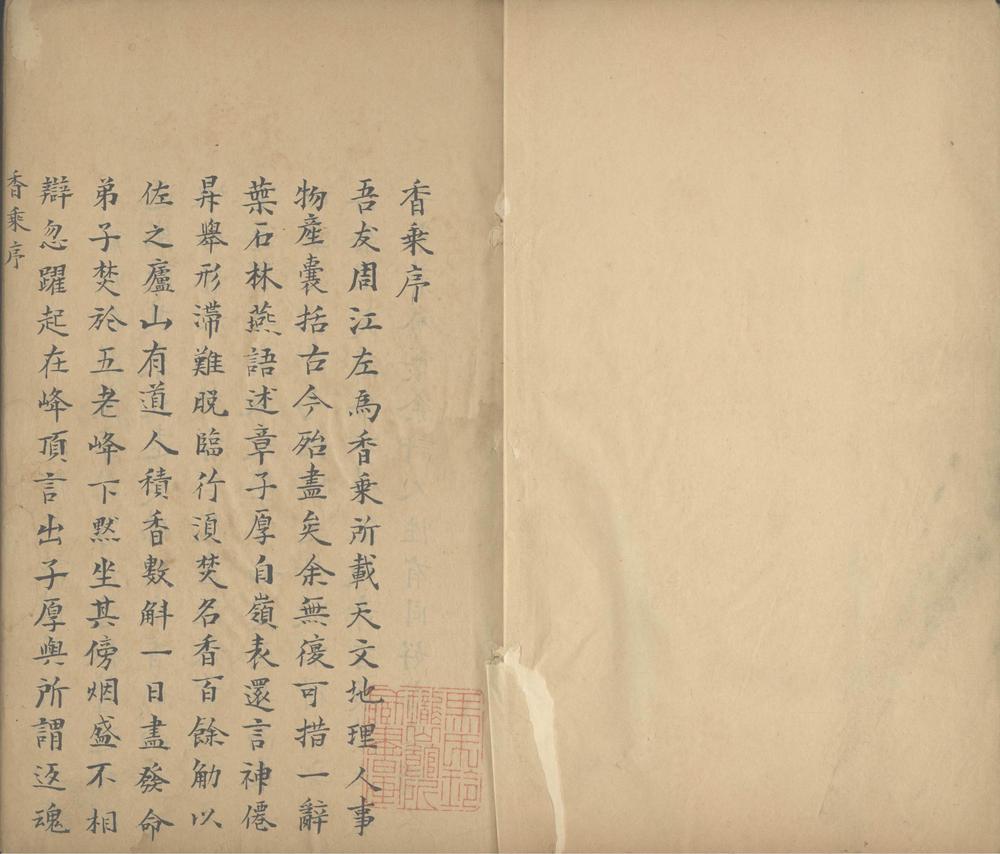 香乗序
吾友周江左爲香乗所載天文地理人事
物産囊括古今殆盡矣余無復可措一辭
葉石林燕語述章子厚自嶺表還言神僊
昇舉形滯難脱臨行湏焚名香百餘觔以
佐之廬山有道人積香數斛一日盡發命
弟子焚於五老峰下黙坐其傍烟盛不相
辯忽躍起在峰頂言出子厚與所謂返魂
香乗序